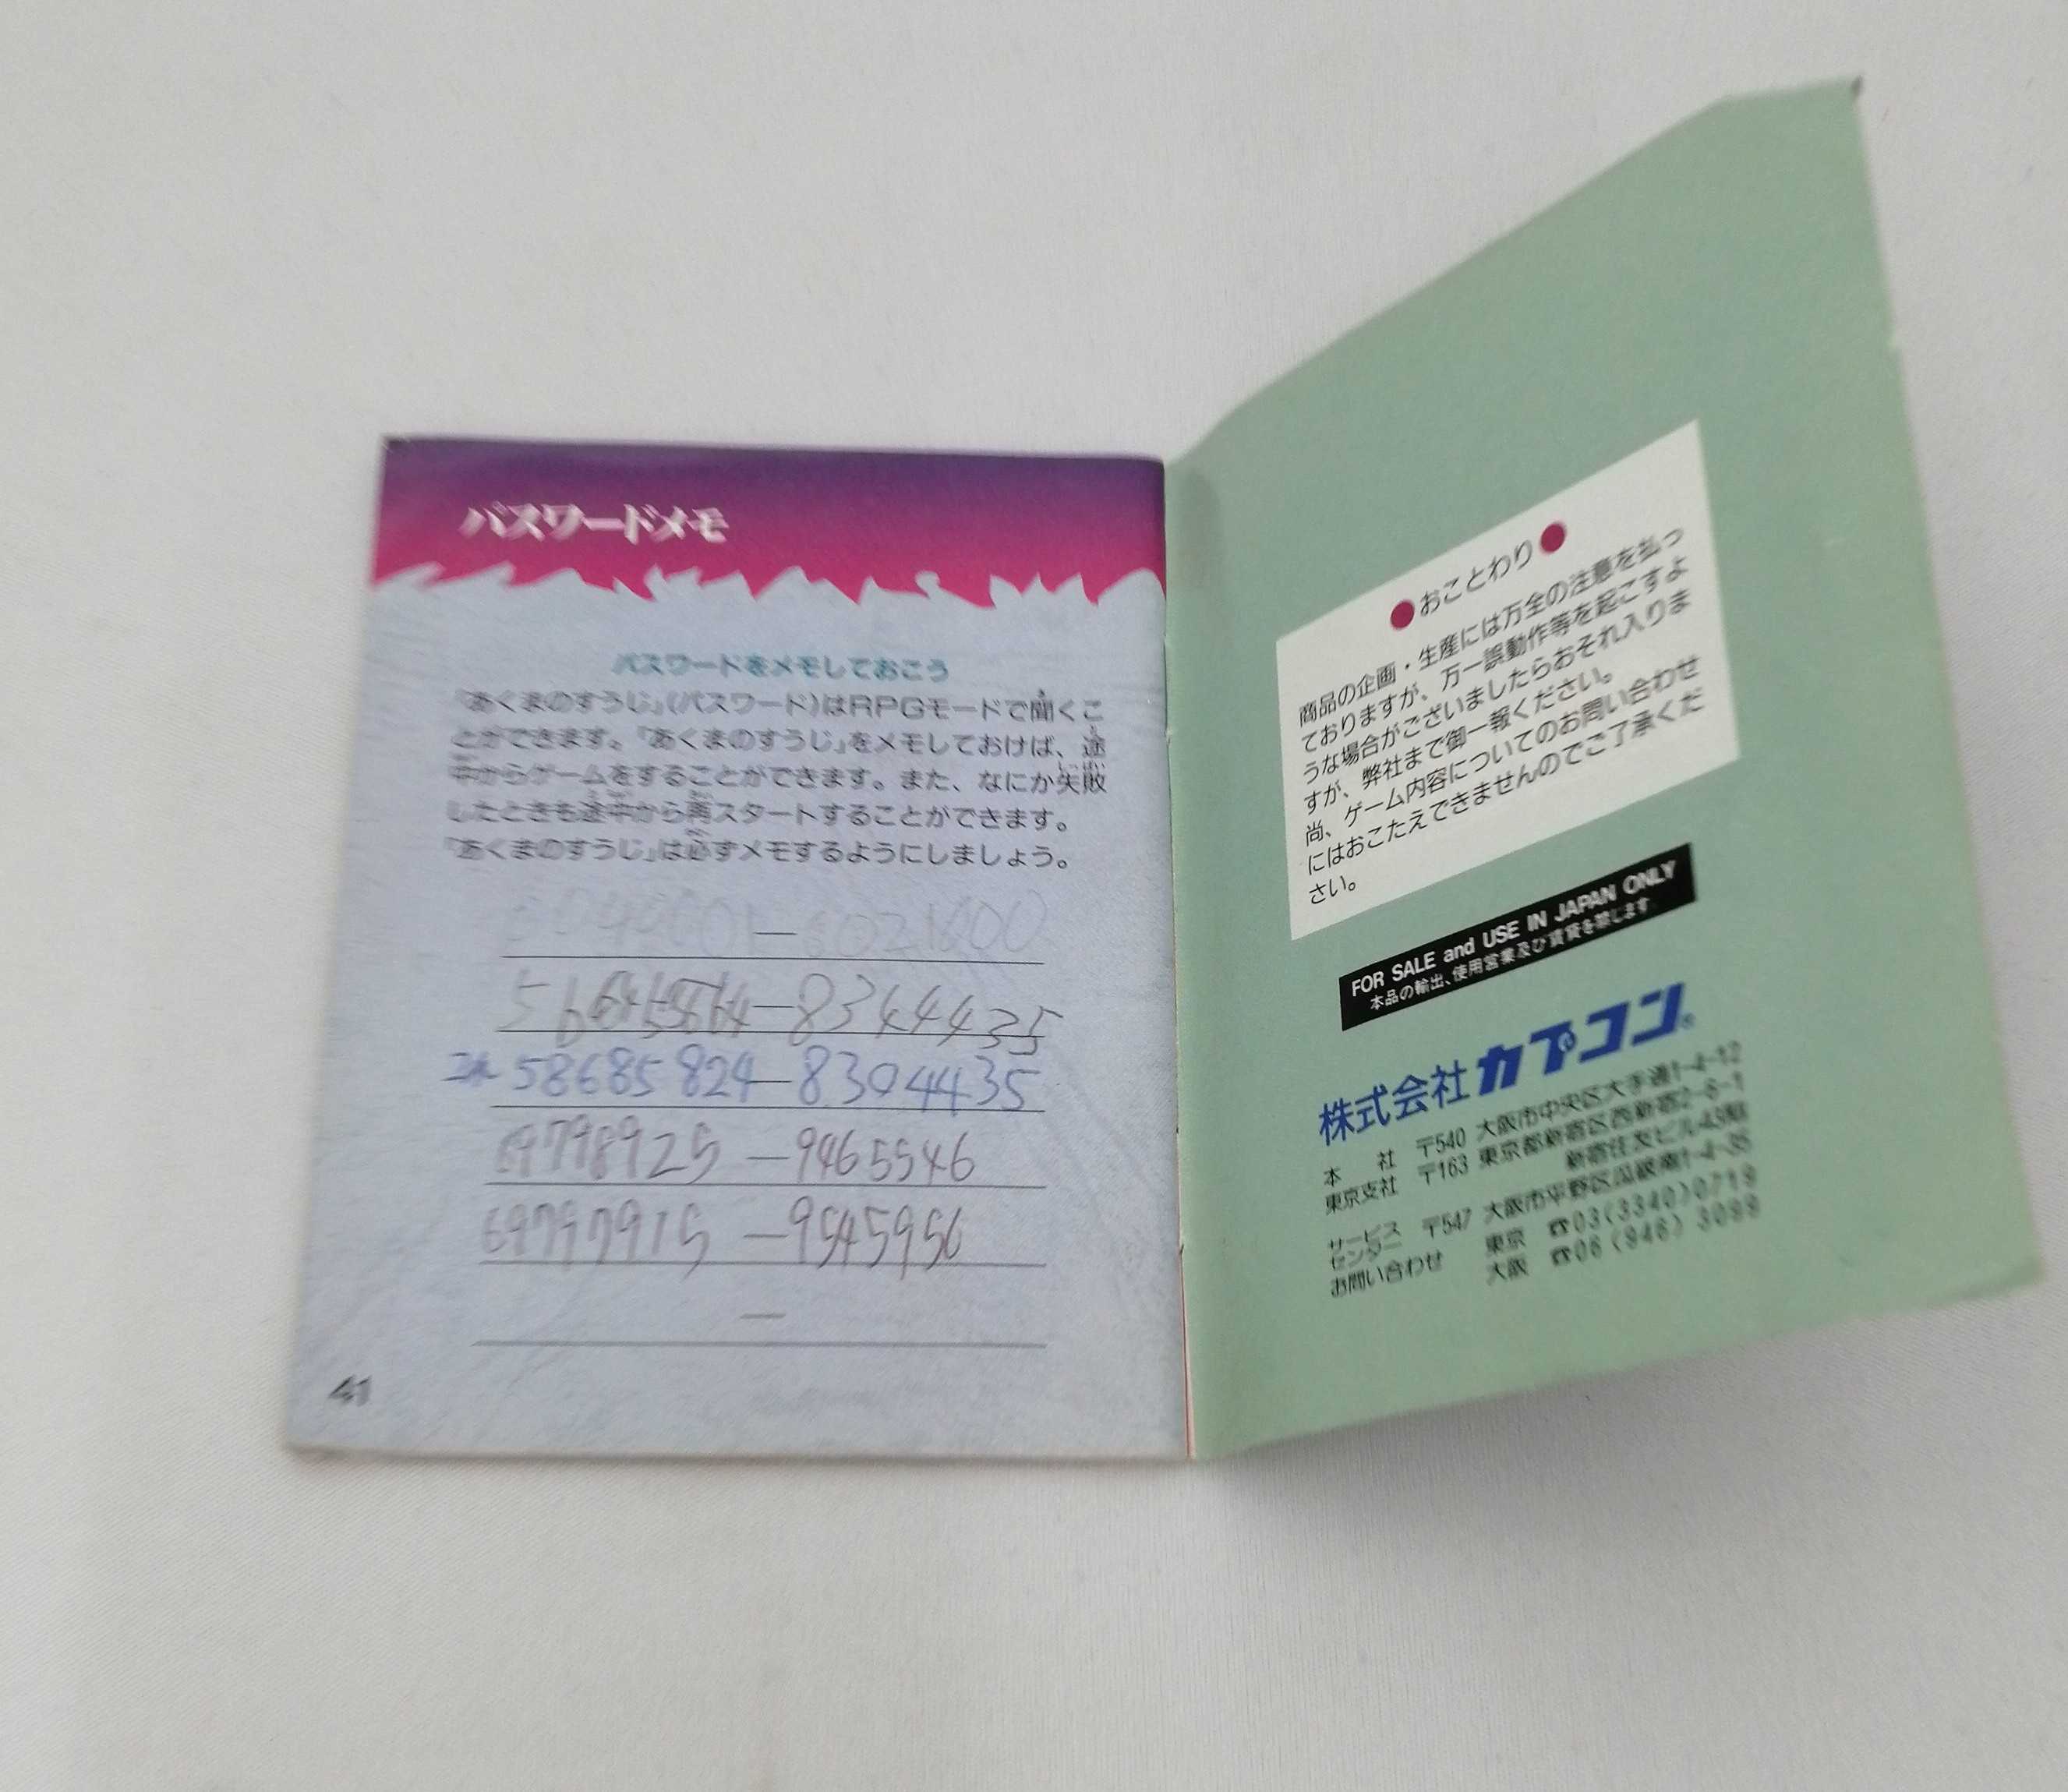 パスワードメモ
パスワードをメモしておこう
「あくまのすうじ」(パスワード)はRPGモードで聞くこ
とができます。「あくまのすうじ」をメモしておけば、途
中からゲームをすることができます。また、なにか失敗
したときも途中から再スタートすることができます。
「あくまのすうじ」は必ずメモするようにしましょう。
—8344435
58685824—8304435
69798925—9465546
69797915—9545956
—
41
●おことわり●
商品の企画・生産には万全の注意を払っ
ておりますが、万一誤動作等を起こすよ
うな場合がございましたらおそれ入りま
すが、弊社まで御一報ください。
尚、ゲーム内容についてのお問い合わせ
にはおこたえできませんのでご了承くだ
さい。
FOR SALE and USE IN JAPAN ONLY
本品の輸出、使用営業及び賃貸を禁じます。
株式会社カプコン®
本 社 〒540 大阪市中央区大手通1-4-12
東京支社 〒163 東京都新宿区西新宿2-6-1
新宿住友ビル43階
サービスセンター 〒547 大阪市平野区瓜破南1-4-35
お問い合わせ 東京 ☎03(3340)0718
大阪 ☎06(946)3099